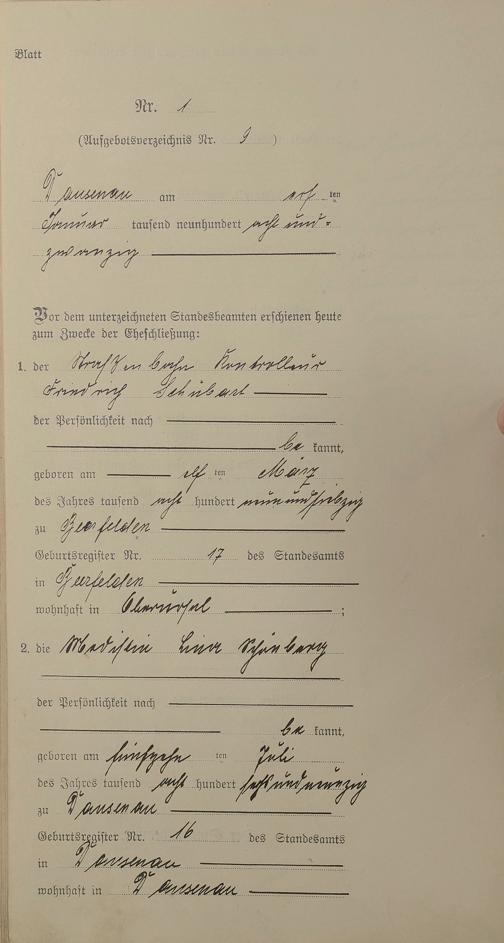 Blatt
Nr. 1
(Aufgebotsverzeichnis Nr. 9)
Dausenau am ten
Januar tausend neunhundert acht und-
zwanzig
Vor dem unterzeichneten Standesbeamten erschienen heute
zum Zwecke der Eheschließung:
1. der Straßenbahn Kontrolleur
Friedrich Schubart
der Persönlichkeit nach
be kannt,
geboren am elf ten März
des Jahres tausend acht hundert neunundsiebzig
zu Beerfelden
Geburtsregister Nr. 17 des Standesamts
in Beerfelden
wohnhaft in Oberursel ;
2. die Modistin Lina Schönberg
der Persönlichkeit nach
be kannt,
geboren am fünfzehn ten Juli
des Jahres tausend acht hundert sechsundneunzig
zu Dausenau
Geburtsregister Nr. 16 des Standesamts
in Dausenau
wohnhaft in Dausenau